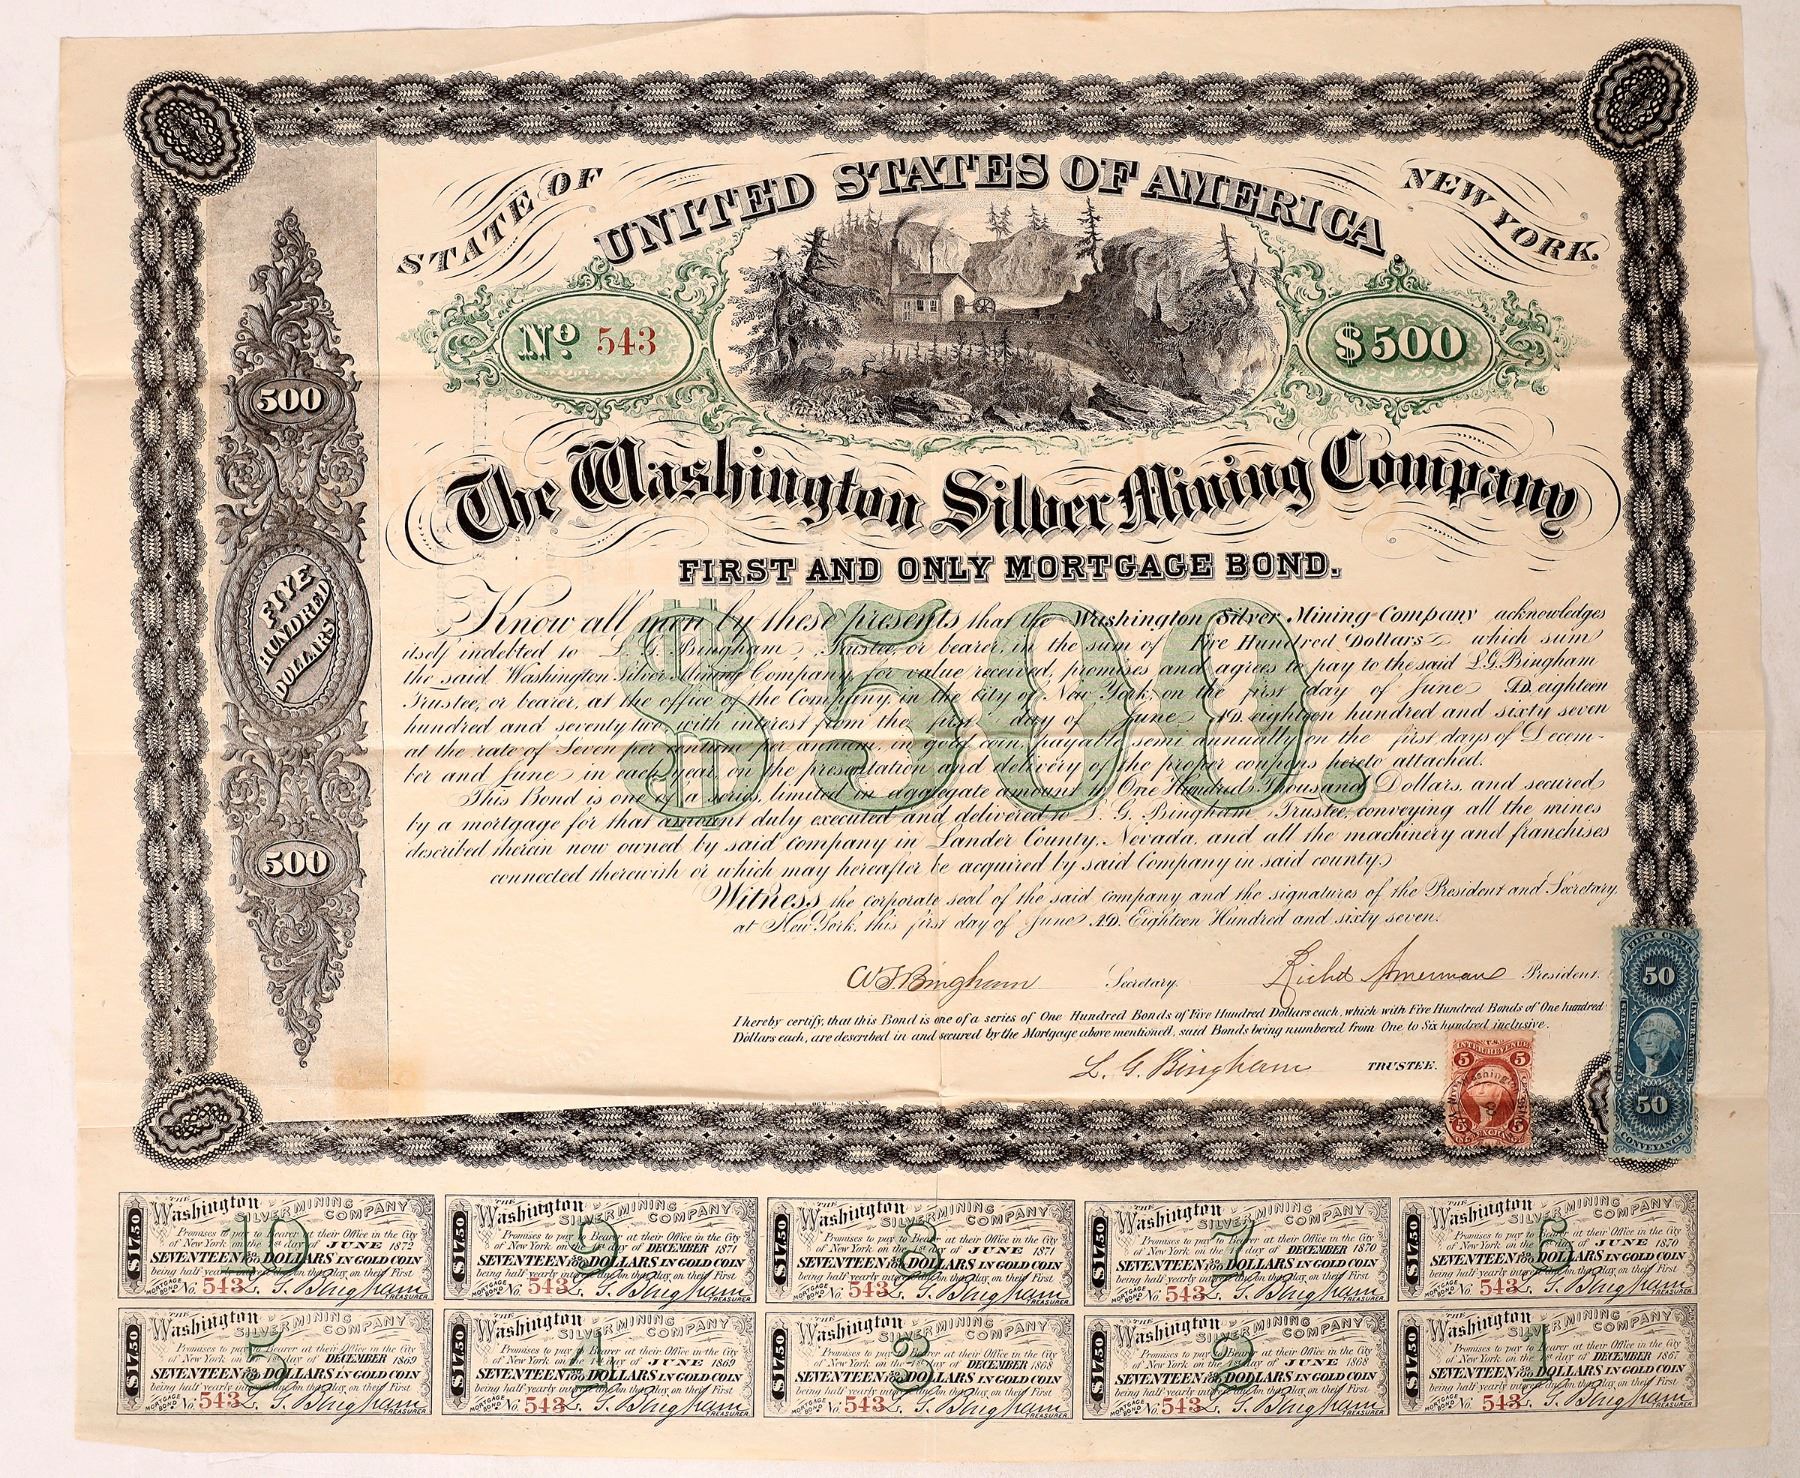 STATE OF
UNITED STATES OF AMERICA.
NEW YORK.
No 543
$500
500
FIVE
HUNDRED
DOLLARS
500
The Washington Silver Mining Company
FIRST AND ONLY MORTGAGE BOND.
$500.
Know all men by these presents that the Washington Silver Mining Company acknowledges
itself indebted to L. G. Bingham, Trustee, or bearer, in the sum of Five Hundred Dollars which sum
the said Washington Silver Mining Company, for value received, promises and agrees to pay to the said L.G. Bingham
Trustee, or bearer, at the office of the Company, in the City of New York, on the first day of June A.D. eighteen
hundred and seventy two, with interest from the first day of June A.D. eighteen hundred and sixty seven
at the rate of Seven per centum per annum, in gold coin, payable semi annually on the first days of Decem-
ber and June in each year, on the presentation and delivery of the proper coupons hereto attached.
This Bond is one of a series, limited in aggregate amount to One Hundred Thousand Dollars, and secured
by a mortgage for that amount duly executed and delivered to L. G. Bingham Trustee, conveying all the mines
described therein now owned by said Company in Lander County, Nevada, and all the machinery and franchises
connected therewith or which may hereafter be acquired by said Company in said county.
Witness the corporate seal of the said company and the signatures of the President and Secretary.
at New York, this first day of June A.D. Eighteen Hundred and sixty seven.
W S Bingham Secretary. Richd Amerman President.
I hereby certify, that this Bond is one of a series of One Hundred Bonds of Five Hundred Dollars each, which with Five Hundred Bonds of One hundred
Dollars each, are described in and secured by the Mortgage above mentioned, said Bonds being numbered from One to Six hundred inclusive.
L. G. Bingham TRUSTEE.
5 5
5 5
FIFTY CENTS
50
UNITED STATES
INTER. REVENUE
50
CONVEYANCE
10
$17.50
THE
Washington SILVER MINING COMPANY
Promises to pay to Bearer at their Office in the City
of New York on the 1st day of JUNE 1872
SEVENTEEN 50/100 DOLLARS IN GOLD COIN
being half yearly interest due on that day, on their First
MORTGAGE BOND No. 543 L. G. Bingham TREASURER
9
$17.50
THE
Washington SILVER MINING COMPANY
Promises to pay to Bearer at their Office in the City
of New York on the 1st day of DECEMBER 1871
SEVENTEEN 50/100 DOLLARS IN GOLD COIN
being half yearly interest due on that day, on their First
MORTGAGE BOND No. 543 L. G. Bingham TREASURER
8
$17.50
THE
Washington SILVER MINING COMPANY
Promises to pay to Bearer at their Office in the City
of New York on the 1st day of JUNE 1871
SEVENTEEN 50/100 DOLLARS IN GOLD COIN
being half yearly interest due on that day, on their First
MORTGAGE BOND No. 543 L. G. Bingham TREASURER
7
$17.50
THE
Washington SILVER MINING COMPANY
Promises to pay to Bearer at their Office in the City
of New York on the 1st day of DECEMBER 1870
SEVENTEEN 50/100 DOLLARS IN GOLD COIN
being half yearly interest due on that day, on their First
MORTGAGE BOND No. 543 L. G. Bingham TREASURER
6
$17.50
THE
Washington SILVER MINING COMPANY
Promises to pay to Bearer at their Office in the City
of New York on the 1st day of JUNE 1870
SEVENTEEN 50/100 DOLLARS IN GOLD COIN
being half yearly interest due on that day, on their First
MORTGAGE BOND No. 543 L. G. Bingham TREASURER
5
$17.50
THE
Washington SILVER MINING COMPANY
Promises to pay to Bearer at their Office in the City
of New York on the 1st day of DECEMBER 1869
SEVENTEEN 50/100 DOLLARS IN GOLD COIN
being half yearly interest due on that day, on their First
MORTGAGE BOND No. 543 L. G. Bingham TREASURER
4
$17.50
THE
Washington SILVER MINING COMPANY
Promises to pay to Bearer at their Office in the City
of New York on the 1st day of JUNE 1869
SEVENTEEN 50/100 DOLLARS IN GOLD COIN
being half yearly interest due on that day, on their First
MORTGAGE BOND No. 543 L. G. Bingham TREASURER
3
$17.50
THE
Washington SILVER MINING COMPANY
Promises to pay to Bearer at their Office in the City
of New York on the 1st day of DECEMBER 1868
SEVENTEEN 50/100 DOLLARS IN GOLD COIN
being half yearly interest due on that day, on their First
MORTGAGE BOND No. 543 L. G. Bingham TREASURER
2
$17.50
THE
Washington SILVER MINING COMPANY
Promises to pay to Bearer at their Office in the City
of New York on the 1st day of JUNE 1868
SEVENTEEN 50/100 DOLLARS IN GOLD COIN
being half yearly interest due on that day, on their First
MORTGAGE BOND No. 543 L. G. Bingham TREASURER
1
$17.50
THE
Washington SILVER MINING COMPANY
Promises to pay to Bearer at their Office in the City
of New York on the 1st day of DECEMBER 1867
SEVENTEEN 50/100 DOLLARS IN GOLD COIN
being half yearly interest due on that day, on their First
MORTGAGE BOND No. 543 L. G. Bingham TREASURER